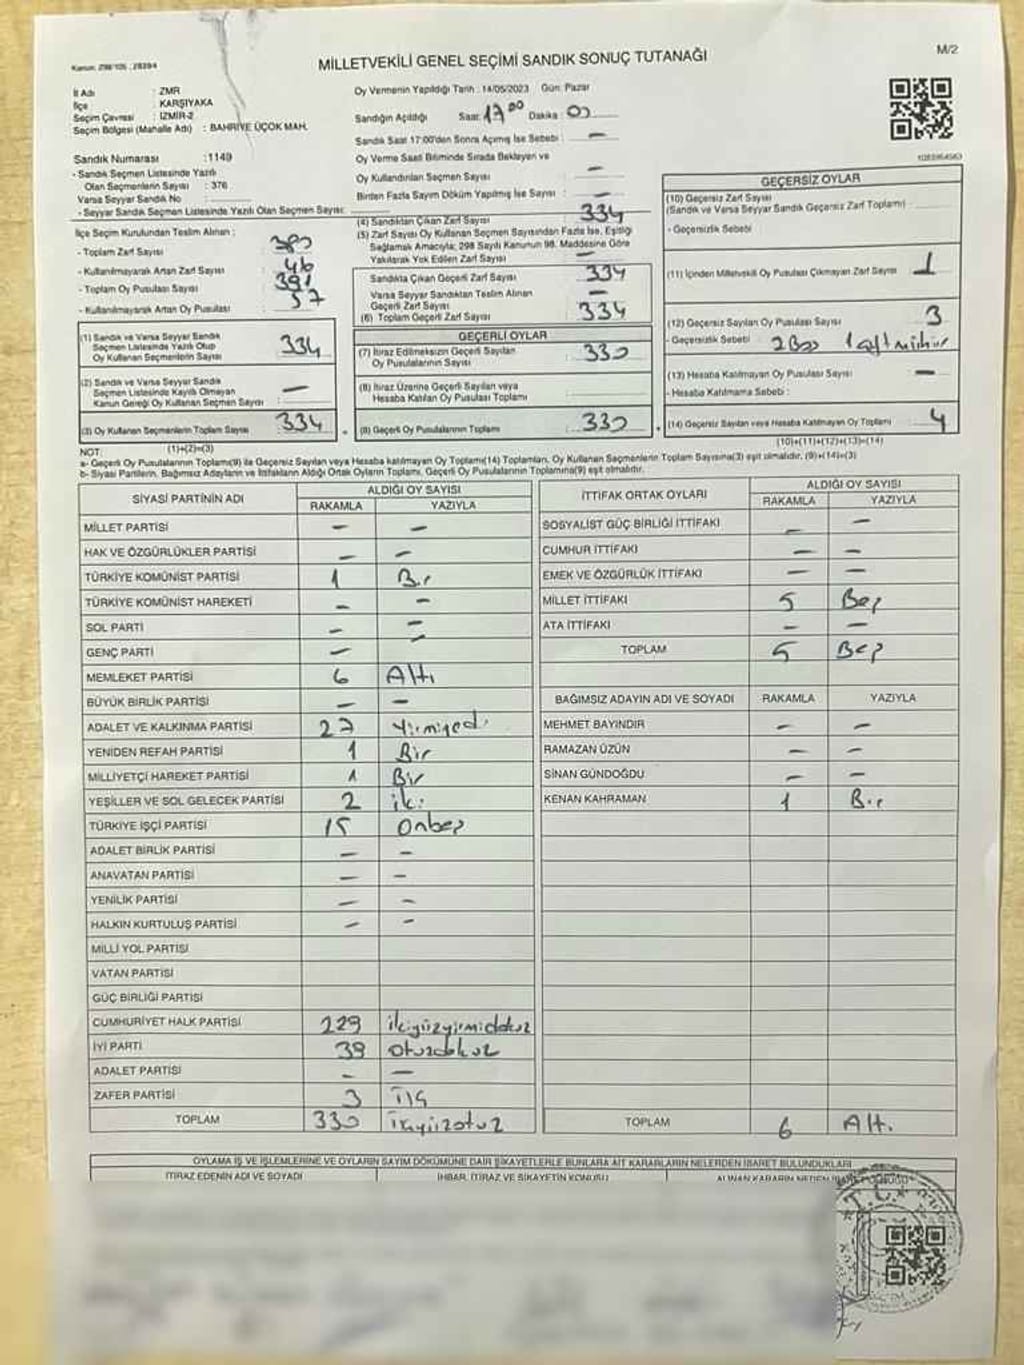 Kanun: 298/105 . 28394
MİLLETVEKİLİ GENEL SEÇİMİ SANDIK SONUÇ TUTANAĞI
M/2
İl Adı : ZMR
İlçe : KARŞIYAKA
Seçim Çevresi : İZMİR-2
Seçim Bölgesi (Mahalle Adı) : BAHRİYE ÜÇOK MAH.
Sandık Numarası : 1149
- Sandık Seçmen Listesinde Yazılı
Olan Seçmenlerin Sayısı : 376
Varsa Seyyar Sandık No :
- Seyyar Sandık Seçmen Listesinde Yazılı Olan Seçmen Sayısı:
İlçe Seçim Kurulundan Teslim Alınan :
- Toplam Zarf Sayısı : 380
- Kullanılmayarak Artan Zarf Sayısı : 46
- Toplam Oy Pusulası Sayısı : 391
- Kullanılmayarak Artan Oy Pusulası : 57
(1) Sandık ve Varsa Seyyar Sandık
Seçmen Listesinde Yazılı Olup
Oy Kullanan Seçmenlerin Sayısı : 334
(2) Sandık ve Varsa Seyyar Sandık
Seçmen Listesinde Kayıtlı Olmayan
Kanun Gereği Oy Kullanan Seçmen Sayısı : —
(3) Oy Kullanan Seçmenlerin Toplam Sayısı : 334
(1)+(2)=(3)
Oy Vermenin Yapıldığı Tarih : 14/05/2023 Gün: Pazar
Sandığın Açıldığı Saat: 17 00 Dakika : 00
Sandık Saat 17:00'den Sonra Açılmış İse Sebebi : —
Oy Verme Saati Bitiminde Sırada Bekleyen ve
Oy Kullandırılan Seçmen Sayısı : —
Birden Fazla Sayım Döküm Yapılmış İse Sayısı : —
(4) Sandıktan Çıkan Zarf Sayısı : 334
(5) Zarf Sayısı Oy Kullanan Seçmen Sayısından Fazla İse, Eşitliği
Sağlamak Amacıyla; 298 Sayılı Kanunun 98. Maddesine Göre
Yakılarak Yok Edilen Zarf Sayısı : —
Sandıkta Çıkan Geçerli Zarf Sayısı : 334
Varsa Seyyar Sandıktan Teslim Alınan
Geçerli Zarf Sayısı : —
(6) Toplam Geçerli Zarf Sayısı : 334
GEÇERLİ OYLAR
(7) İtiraz Edilmeksizin Geçerli Sayılan
Oy Pusulasının Sayısı : 330
(8) İtiraz Üzerine Geçerli Sayılan veya
Hesaba Katılan Oy Pusulası Toplamı :
(9) Geçerli Oy Pusulalarının Toplamı : 330
GEÇERSİZ OYLAR
(10) Geçersiz Zarf Sayısı
(Sandık ve Varsa Seyyar Sandık Geçersiz Zarf Toplamı) :
- Geçersizlik Sebebi :
(11) İçinden Milletvekili Oy Pusulası Çıkmayan Zarf Sayısı : 1
(12) Geçersiz Sayılan Oy Pusulası Sayısı : 3
- Geçersizlik Sebebi : 2 Boş 1 çift mühür
(13) Hesaba Katılmayan Oy Pusulası Sayısı : —
- Hesaba Katılmama Sebebi :
(14) Geçersiz Sayılan veya Hesaba Katılmayan Oy Toplamı : 4
(10)+(11)+(12)+(13)=(14)
NOT:
a- Geçerli Oy Pusulalarının Toplamı(9) ile Geçersiz Sayılan veya Hesaba katılmayan Oy Toplamı(14) Toplamları, Oy Kullanan Seçmenlerin Toplam Sayısına(3) eşit olmalıdır. (9)+(14)=(3)
b- Siyasi Partilerin, Bağımsız Adayların ve İttifakların Aldığı Ortak Oyların Toplamı, Geçerli Oy Pusulalarının Toplamına(9) eşit olmalıdır.
SİYASİ PARTİNİN ADI ALDIĞI OY SAYISI
RAKAMLA YAZIYLA
MİLLET PARTİSİ — —
HAK VE ÖZGÜRLÜKLER PARTİSİ — —
TÜRKİYE KOMÜNİST PARTİSİ 1 Bir
TÜRKİYE KOMÜNİST HAREKETİ — —
SOL PARTİ — —
GENÇ PARTİ — —
MEMLEKET PARTİSİ 6 Altı
BÜYÜK BİRLİK PARTİSİ — —
ADALET VE KALKINMA PARTİSİ 27 Yirmiyedi
YENİDEN REFAH PARTİSİ 1 Bir
MİLLİYETÇİ HAREKET PARTİSİ 1 Bir
YEŞİLLER VE SOL GELECEK PARTİSİ 2 iki
TÜRKİYE İŞÇİ PARTİSİ 15 Onbeş
ADALET BİRLİK PARTİSİ — —
ANAVATAN PARTİSİ — —
YENİLİK PARTİSİ — —
HALKIN KURTULUŞ PARTİSİ — —
MİLLİ YOL PARTİSİ
VATAN PARTİSİ
GÜÇ BİRLİĞİ PARTİSİ
CUMHURİYET HALK PARTİSİ 229 ikiyüzyirmidokuz
İYİ PARTİ 39 otuzdokuz
ADALET PARTİSİ — —
ZAFER PARTİSİ 3 Üç
TOPLAM 330
İTTİFAK ORTAK OYLARI ALDIĞI OY SAYISI
RAKAMLA YAZIYLA
SOSYALİST GÜÇ BİRLİĞİ İTTİFAKI — —
CUMHUR İTTİFAKI — —
EMEK VE ÖZGÜRLÜK İTTİFAKI — —
MİLLET İTTİFAKI 5 Beş
ATA İTTİFAKI — —
TOPLAM 5 Beş
BAĞIMSIZ ADAYIN ADI VE SOYADI RAKAMLA YAZIYLA
MEHMET BAYINDIR — —
RAMAZAN ÜZÜN — —
SİNAN GÜNDOĞDU — —
KENAN KAHRAMAN 1 Bir
TOPLAM 6 Altı
OYLAMA İŞ VE İŞLEMLERİNE VE OYLARIN SAYIM DÖKÜMÜNE DAİR ŞİKAYETLERLE BUNLARA AİT KARARLARIN NELERDEN İBARET BULUNDUKLARI
İTİRAZ EDENİN ADI VE SOYADI İHBAR, İTİRAZ VE ŞİKAYETİN KONUSU
T.C.